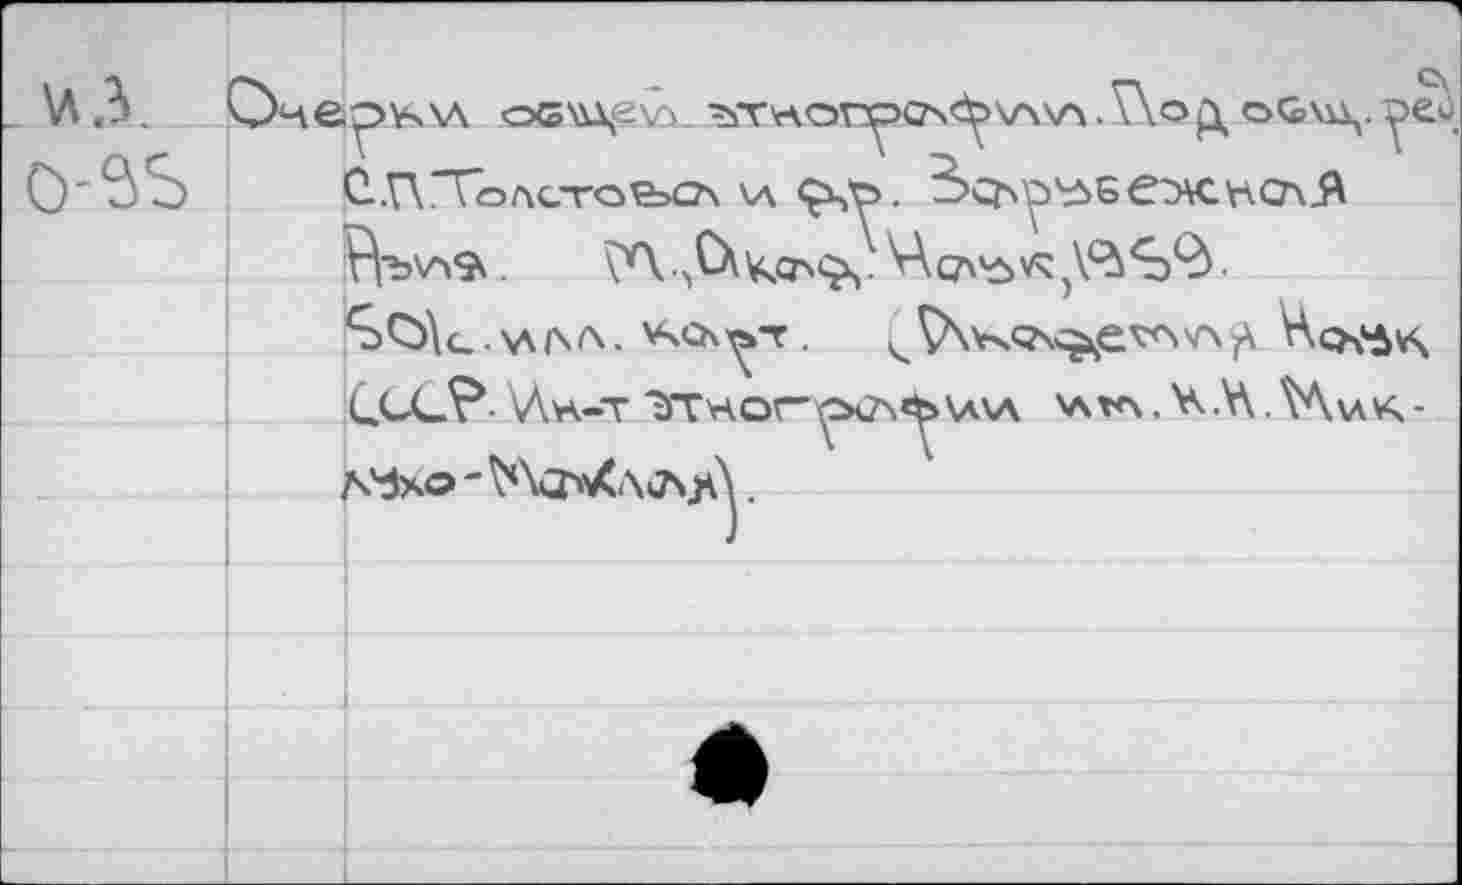 И.З. Очерки общей этнографии. Под общ. ред.
О-95 С.П.Толстова и др. Зарубежная
Азия. М., Акад. Наук, 1959.
801с. илл. карт. (Академия Наук
СССР. Ин-т этнографии им. Н.Н. Мик-
лухо-Маклая).